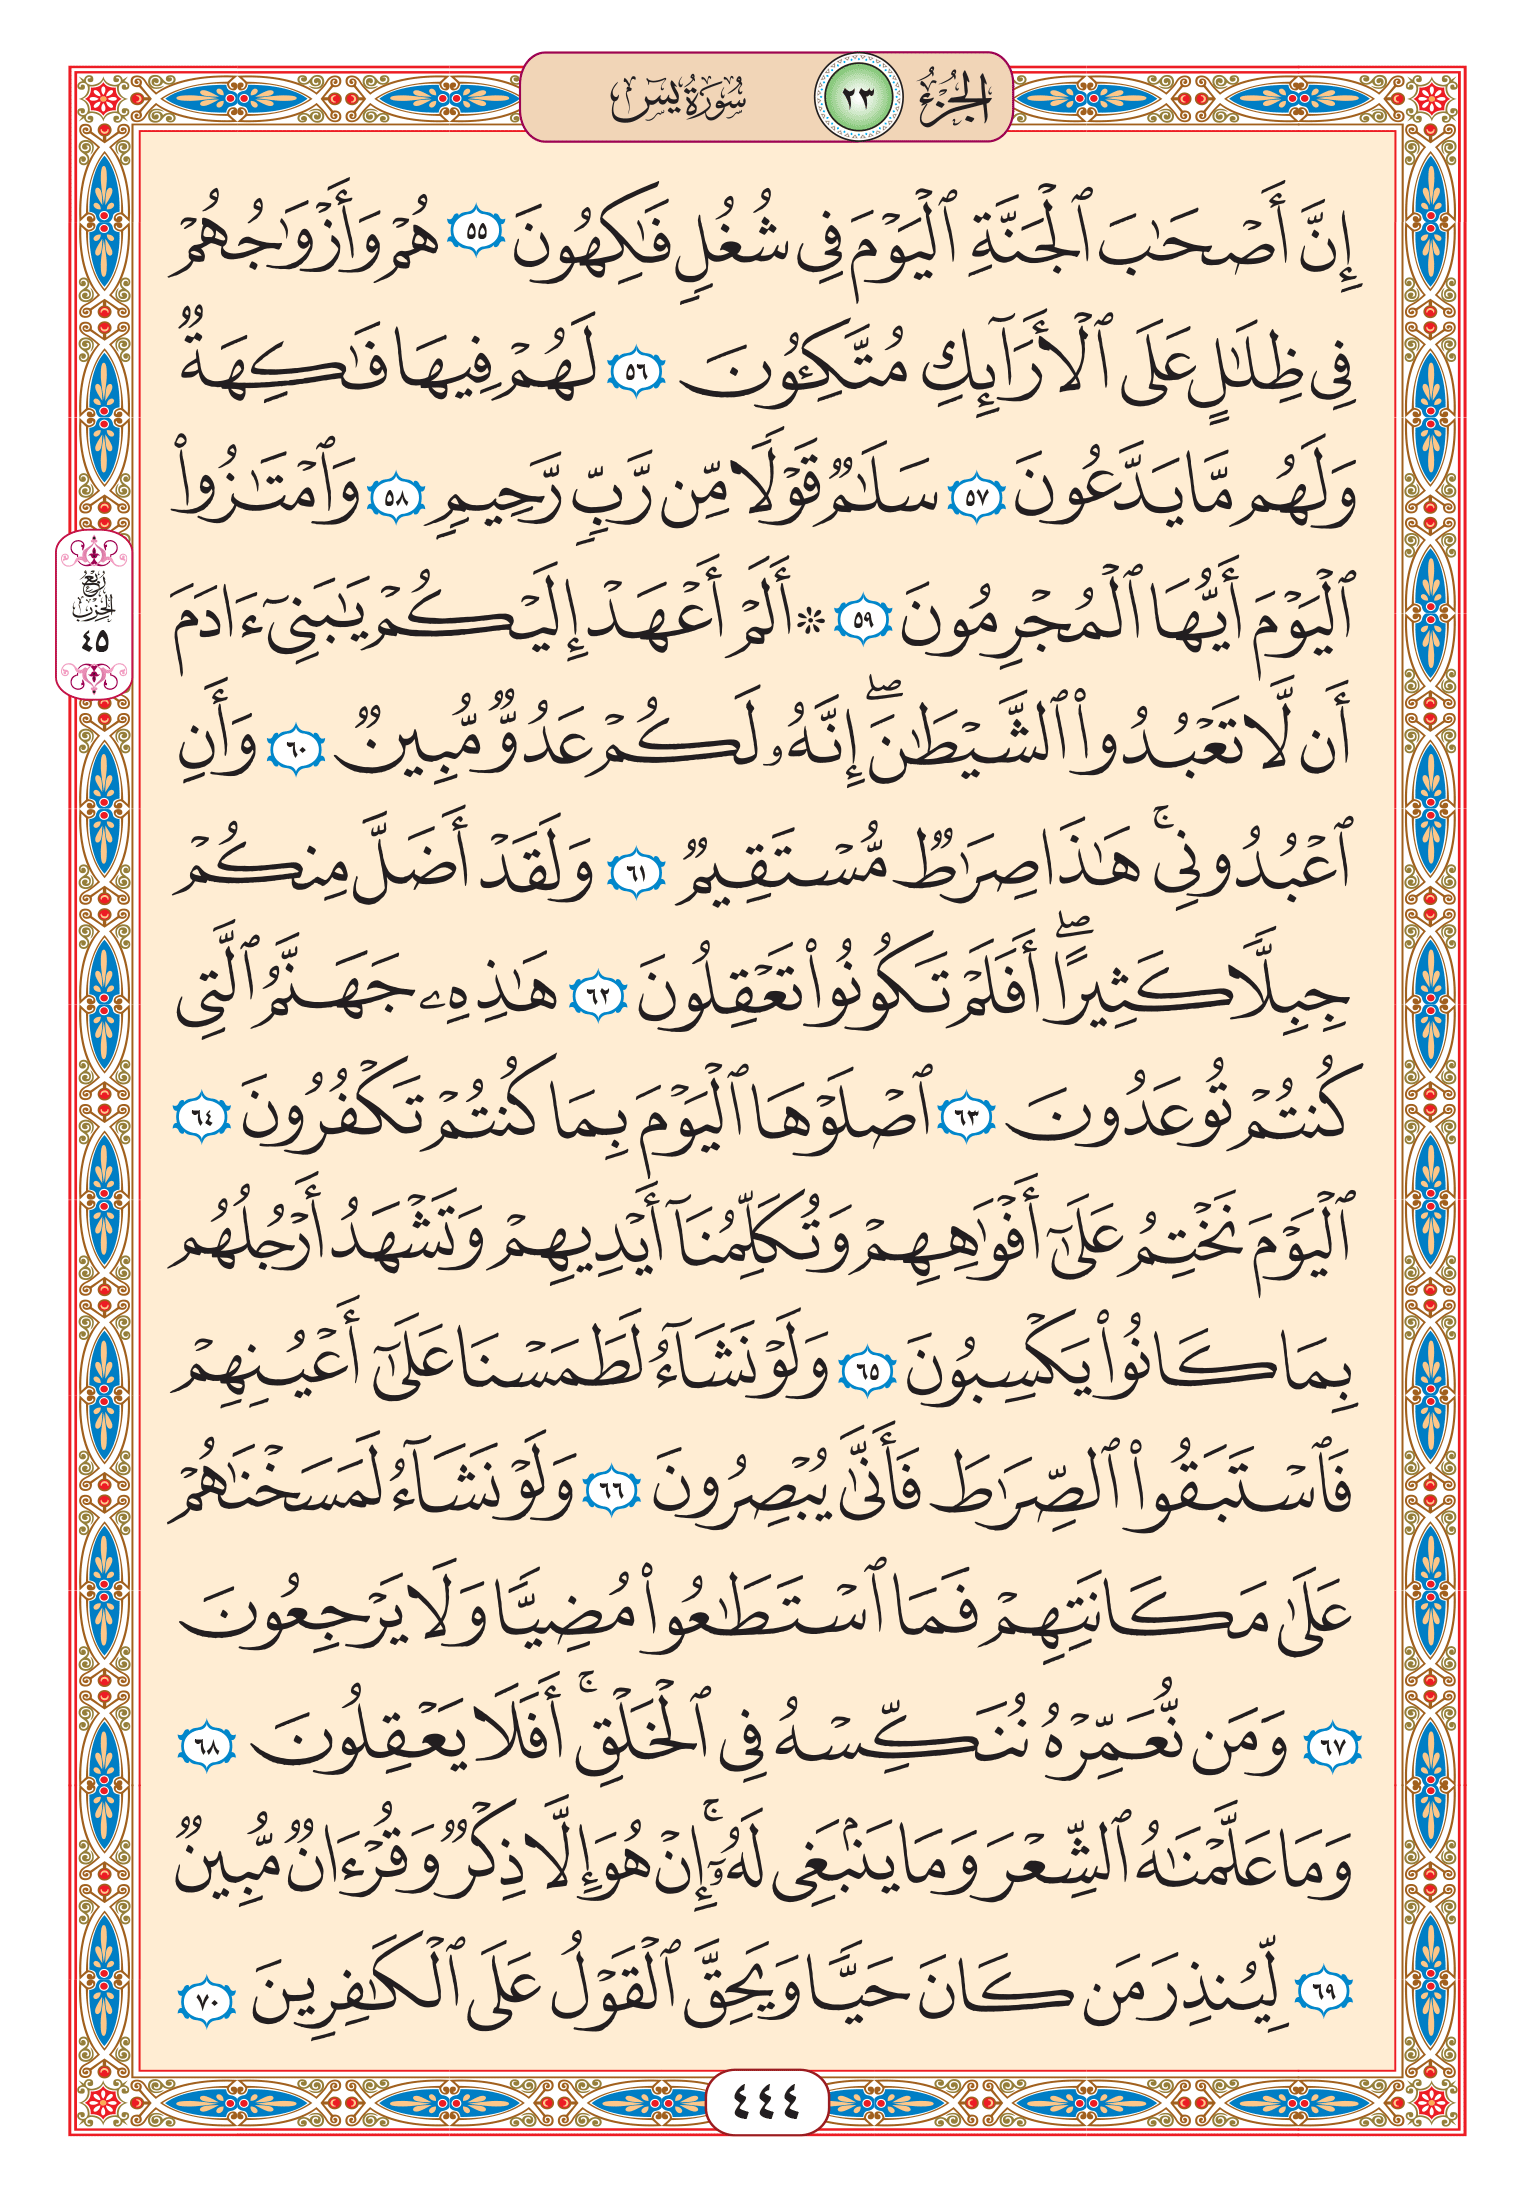 الجزء ٢٣ سورة يس
إِنَّ أَصْحَٰبَ ٱلْجَنَّةِ ٱلْيَوْمَ فِى شُغُلٍ فَٰكِهُونَ ٥٥ هُمْ وَأَزْوَٰجُهُمْ
فِى ظِلَٰلٍ عَلَى ٱلْأَرَآئِكِ مُتَّكِـُٔونَ ٥٦ لَهُمْ فِيهَا فَٰكِهَةٌ
وَلَهُم مَّا يَدَّعُونَ ٥٧ سَلَٰمٌ قَوْلًا مِّن رَّبٍّ رَّحِيمٍ ٥٨ وَٱمْتَٰزُوا۟
ٱلْيَوْمَ أَيُّهَا ٱلْمُجْرِمُونَ ٥٩ ۞ أَلَمْ أَعْهَدْ إِلَيْكُمْ يَٰبَنِىٓ ءَادَمَ
ربع الحزب ٤٥
أَن لَّا تَعْبُدُوا۟ ٱلشَّيْطَٰنَ ۖ إِنَّهُۥ لَكُمْ عَدُوٌّ مُّبِينٌ ٦٠ وَأَنِ
ٱعْبُدُونِى ۚ هَٰذَا صِرَٰطٌ مُّسْتَقِيمٌ ٦١ وَلَقَدْ أَضَلَّ مِنكُمْ
جِبِلًّا كَثِيرًا ۖ أَفَلَمْ تَكُونُوا۟ تَعْقِلُونَ ٦٢ هَٰذِهِۦ جَهَنَّمُ ٱلَّتِى
كُنتُمْ تُوعَدُونَ ٦٣ ٱصْلَوْهَا ٱلْيَوْمَ بِمَا كُنتُمْ تَكْفُرُونَ ٦٤
ٱلْيَوْمَ نَخْتِمُ عَلَىٰٓ أَفْوَٰهِهِمْ وَتُكَلِّمُنَآ أَيْدِيهِمْ وَتَشْهَدُ أَرْجُلُهُم
بِمَا كَانُوا۟ يَكْسِبُونَ ٦٥ وَلَوْ نَشَآءُ لَطَمَسْنَا عَلَىٰٓ أَعْيُنِهِمْ
فَٱسْتَبَقُوا۟ ٱلصِّرَٰطَ فَأَنَّىٰ يُبْصِرُونَ ٦٦ وَلَوْ نَشَآءُ لَمَسَخْنَٰهُمْ
عَلَىٰ مَكَانَتِهِمْ فَمَا ٱسْتَطَٰعُوا۟ مُضِيًّا وَلَا يَرْجِعُونَ
٦٧ وَمَن نُّعَمِّرْهُ نُنَكِّسْهُ فِى ٱلْخَلْقِ ۚ أَفَلَا يَعْقِلُونَ ٦٨
وَمَا عَلَّمْنَٰهُ ٱلشِّعْرَ وَمَا يَنۢبَغِى لَهُۥٓ ۚ إِنْ هُوَ إِلَّا ذِكْرٌ وَقُرْءَانٌ مُّبِينٌ
٦٩ لِّيُنذِرَ مَن كَانَ حَيًّا وَيَحِقَّ ٱلْقَوْلُ عَلَى ٱلْكَٰفِرِينَ ٧٠
٤٤٤